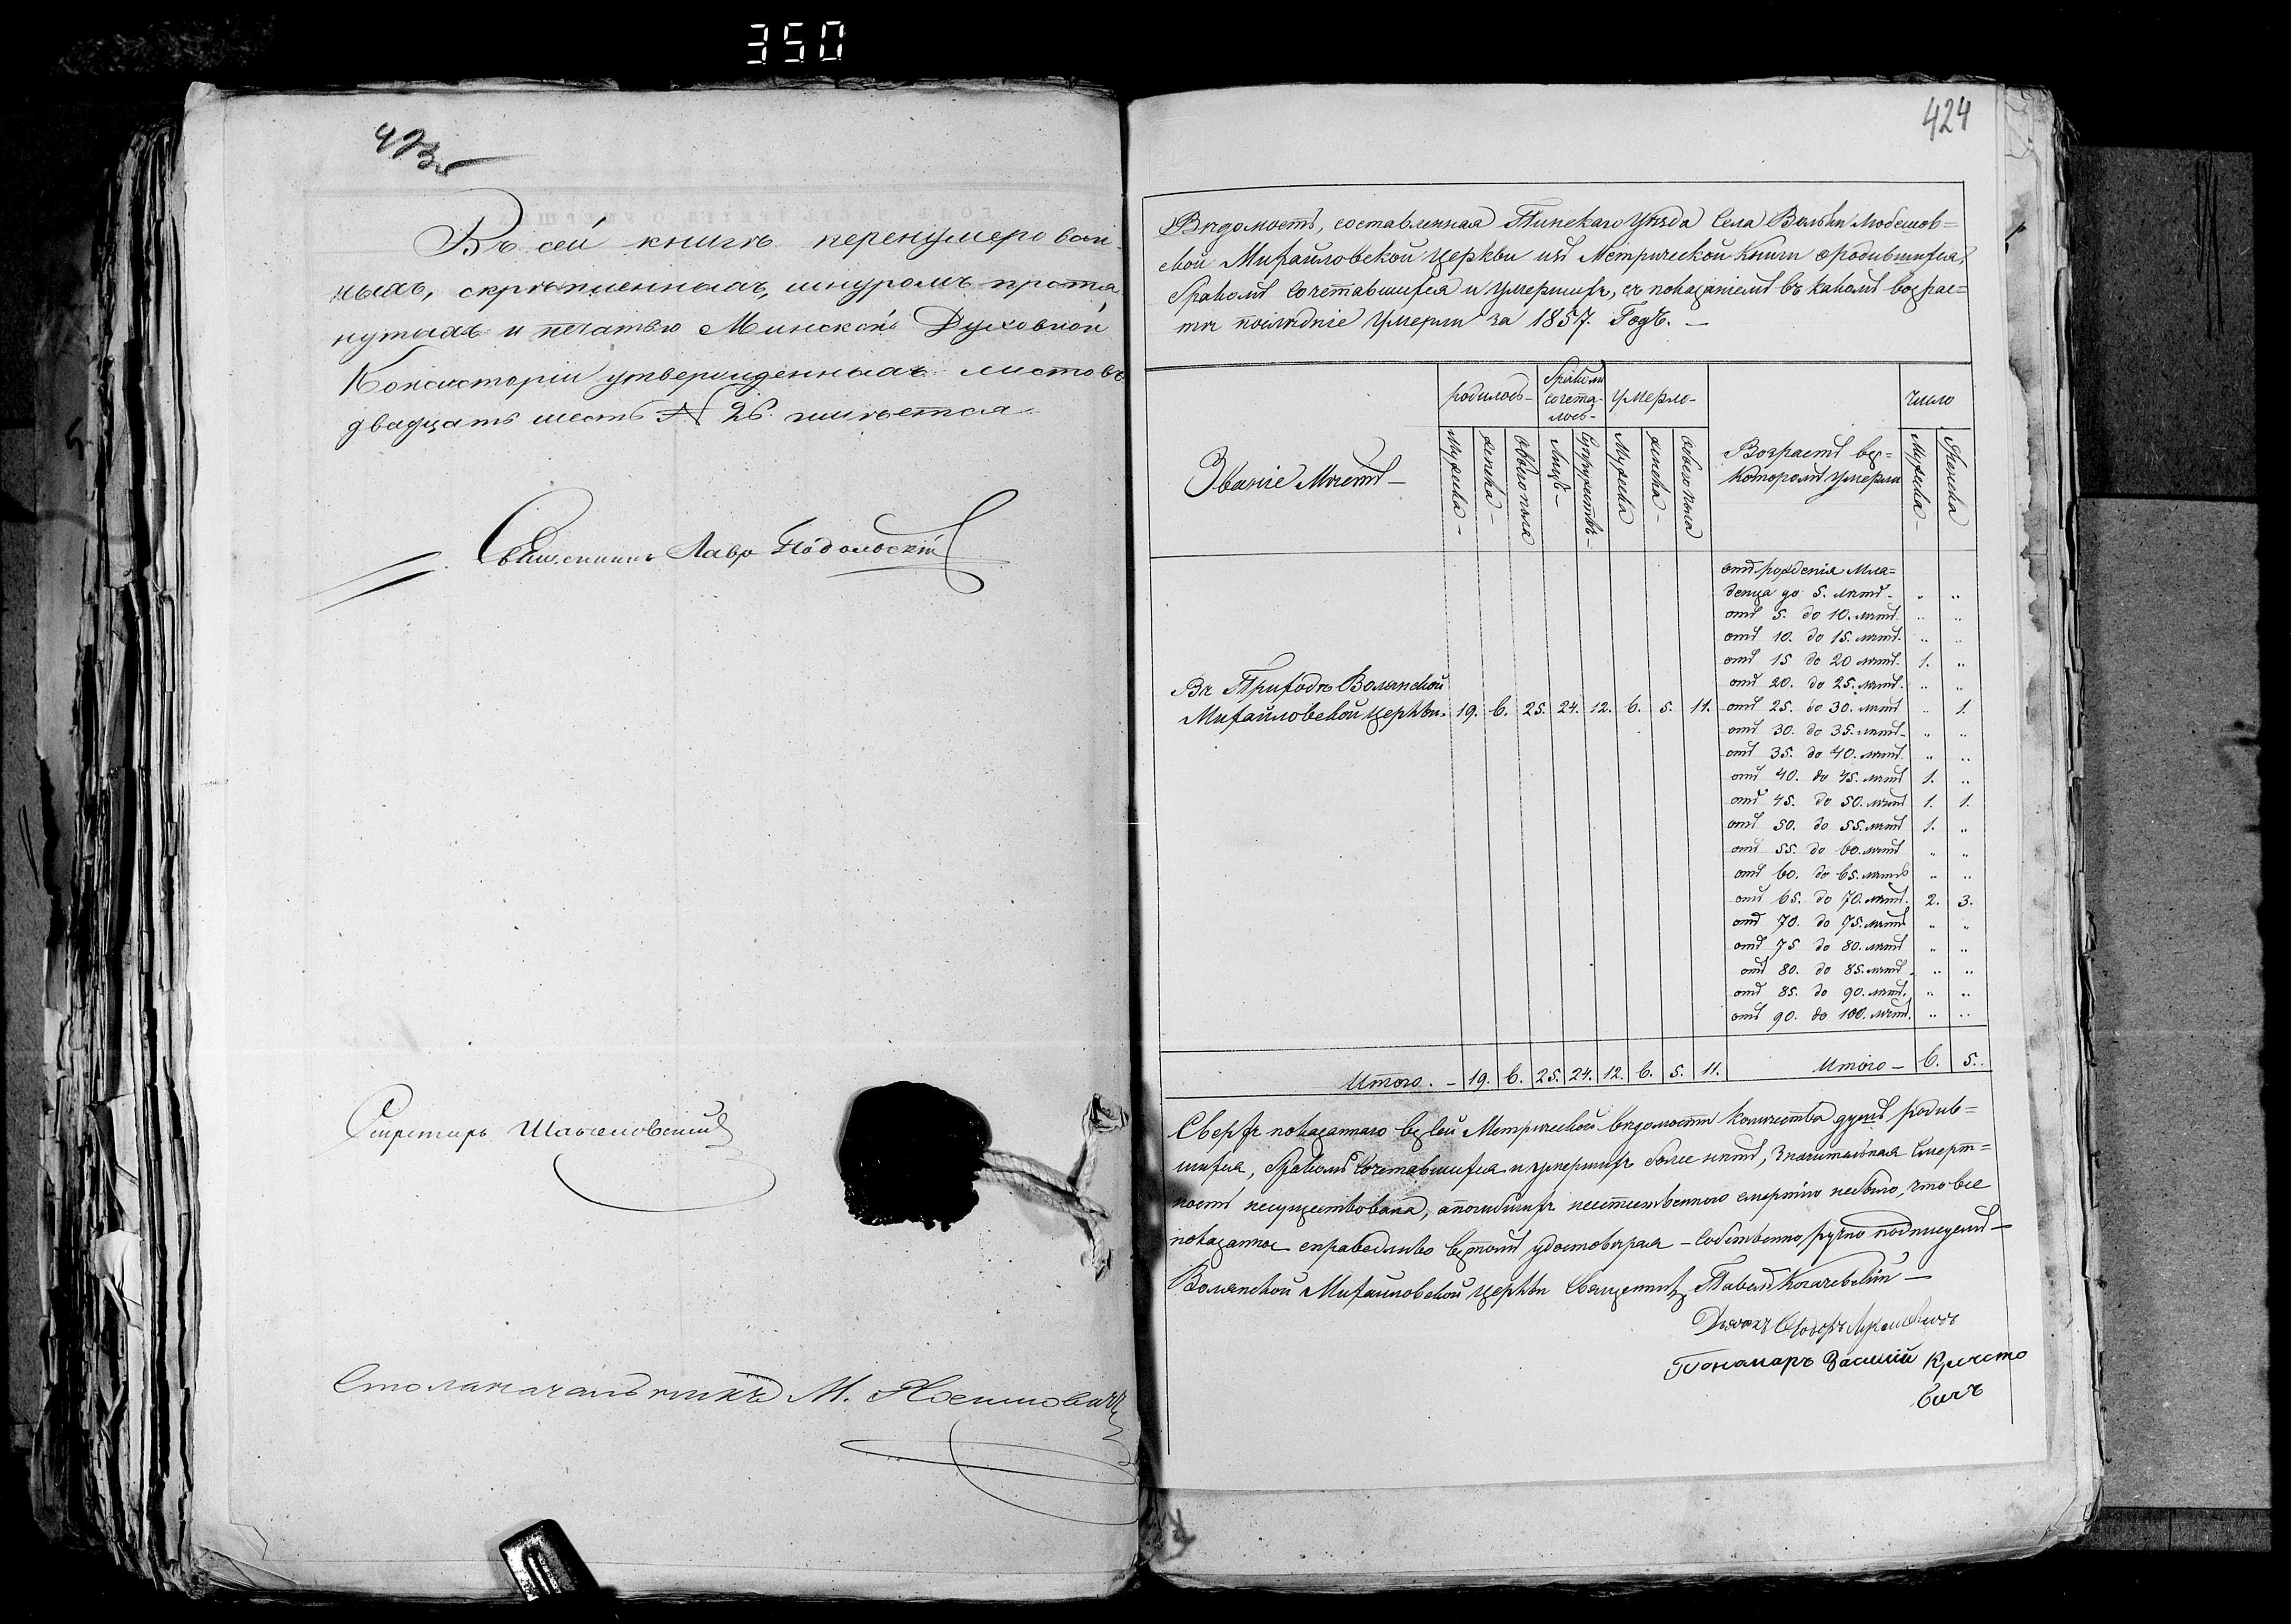 350
423об
Въ сей книгѣ перенумерован-
ныхъ, скрѣпленныхъ, шнуромъ протя
нутыхъ и печатью Минской Духовной
Консисторіи утвержденныхъ листовъ
двадцать шесть N 26. имѣется.
Священникъ Лавръ Подольскій
Секретарь
Столоначальникъ М.
424
Вѣдомость, составленная Пинскаго Уѣзда Села Вольки Любешов=
ской Михайловской Церкви изъ Метрической Книги о родившихся,
бракомъ сочетавшихся и умершихъ, съ показаніемъ въ какомъ возрас=
тѣ послѣдніе умерли за 1857. Годъ. —
Званіе Мѣстъ —
родилось —
Мужеска —
женска —
обоего пола
Бракомъ
сочета-
лось -
Лицъ —
Супружествъ —
умерло -
Мужеска
женска —
обоего пола
Возрастъ въ=
которомъ умерли
число
Мужеска —
Женска
отъ рожденія Мла=
денца до 5. лѣтъ - „ „
отъ 5. до 10. лѣтъ. „ „
отъ 10. до 15. лѣтъ. „ „
отъ 15 до 20 лѣтъ. 1. „
отъ 20. до 25. лѣтъ. „ „
Въ Приходѣ Волянской
Михайловской церкви. 19. 6. 25. 24. 12. 6. 5. 11. отъ 25. до 30. лѣтъ „ 1.
отъ 30. до 35. лѣтъ - „ „
отъ 35. до 40. лѣтъ. „ „
отъ 40. до 45. лѣтъ 1. „
отъ 45. до 50. лѣтъ 1. 1.
отъ 50. до 55. лѣтъ 1. „
отъ 55. до 60. лѣтъ „ „
отъ 60. до 65. лѣтъ „ „
отъ 65. до 70. лѣтъ. 2. 3.
отъ 70. до 75. лѣтъ „ „
отъ 75 до 80. лѣтъ „ „
отъ 80. до 85. лѣтъ. „ „
отъ 85. до 90. лѣтъ. „ „
отъ 90. до 100. лѣтъ. „ „
Итого. — 19. 6. 25. 24. 12. 6. 5. 11. Итого — 6. 5.
Сверхъ показаннаго въ сей Метрической вѣдомости количества душъ родив=
шихся, бракомъ сочетавшихся и умершихъ более нѣтъ, значительная смерт=
ность несуществовала, апогибшихъ неестественною смертію небыло, что все
показанное справедливо въ томъ удостовѣряя — собственно ручно подписуемъ —
Волянской Михайловской церкви Священникъ Павелъ
Дьячокъ
Пономарь Василій Кристо
вичъ